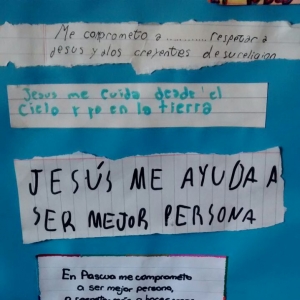 Me comprometo a ............ respetar a
Jesus y a los creyentes de su religion
Jesus me cuida desde el
Cielo y yo en la tierra
JESÚS ME AYUDA A
SER MEJOR PERSONA
En Pascua me comprometo
a ser mejor persona,